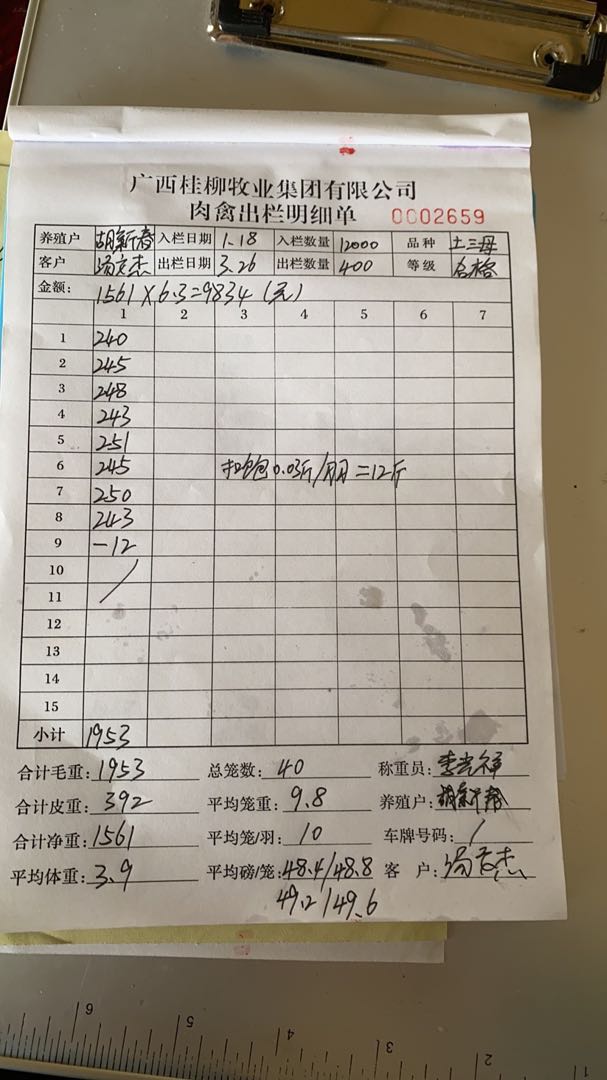 广西桂柳牧业集团有限公司
肉禽出栏明细单 0002659
养殖户 胡新春 入栏日期 1.18 入栏数量 12000 品种 土三母
客户 汤文杰 出栏日期 3.26 出栏数量 400 等级 合格
金额: 1561×6.3=9834(元)
1 2 3 4 5 6 7
1 240
2 245
3 248
4 243
5 251
6 245 扣饱0.03斤/羽=12斤
7 250
8 243
9 -12
10
11
12
13
14
15
小计 1953
合计毛重: 1953 总笼数: 40 称重员:
合计皮重: 392 平均笼重: 9.8 养殖户: 胡新春
合计净重: 1561 平均笼/羽: 10 车牌号码: /
平均体重: 3.9 平均磅/笼: 48.4/48.8 客 户: 汤文杰
49.2/49.6
6 5 4 3 2 1